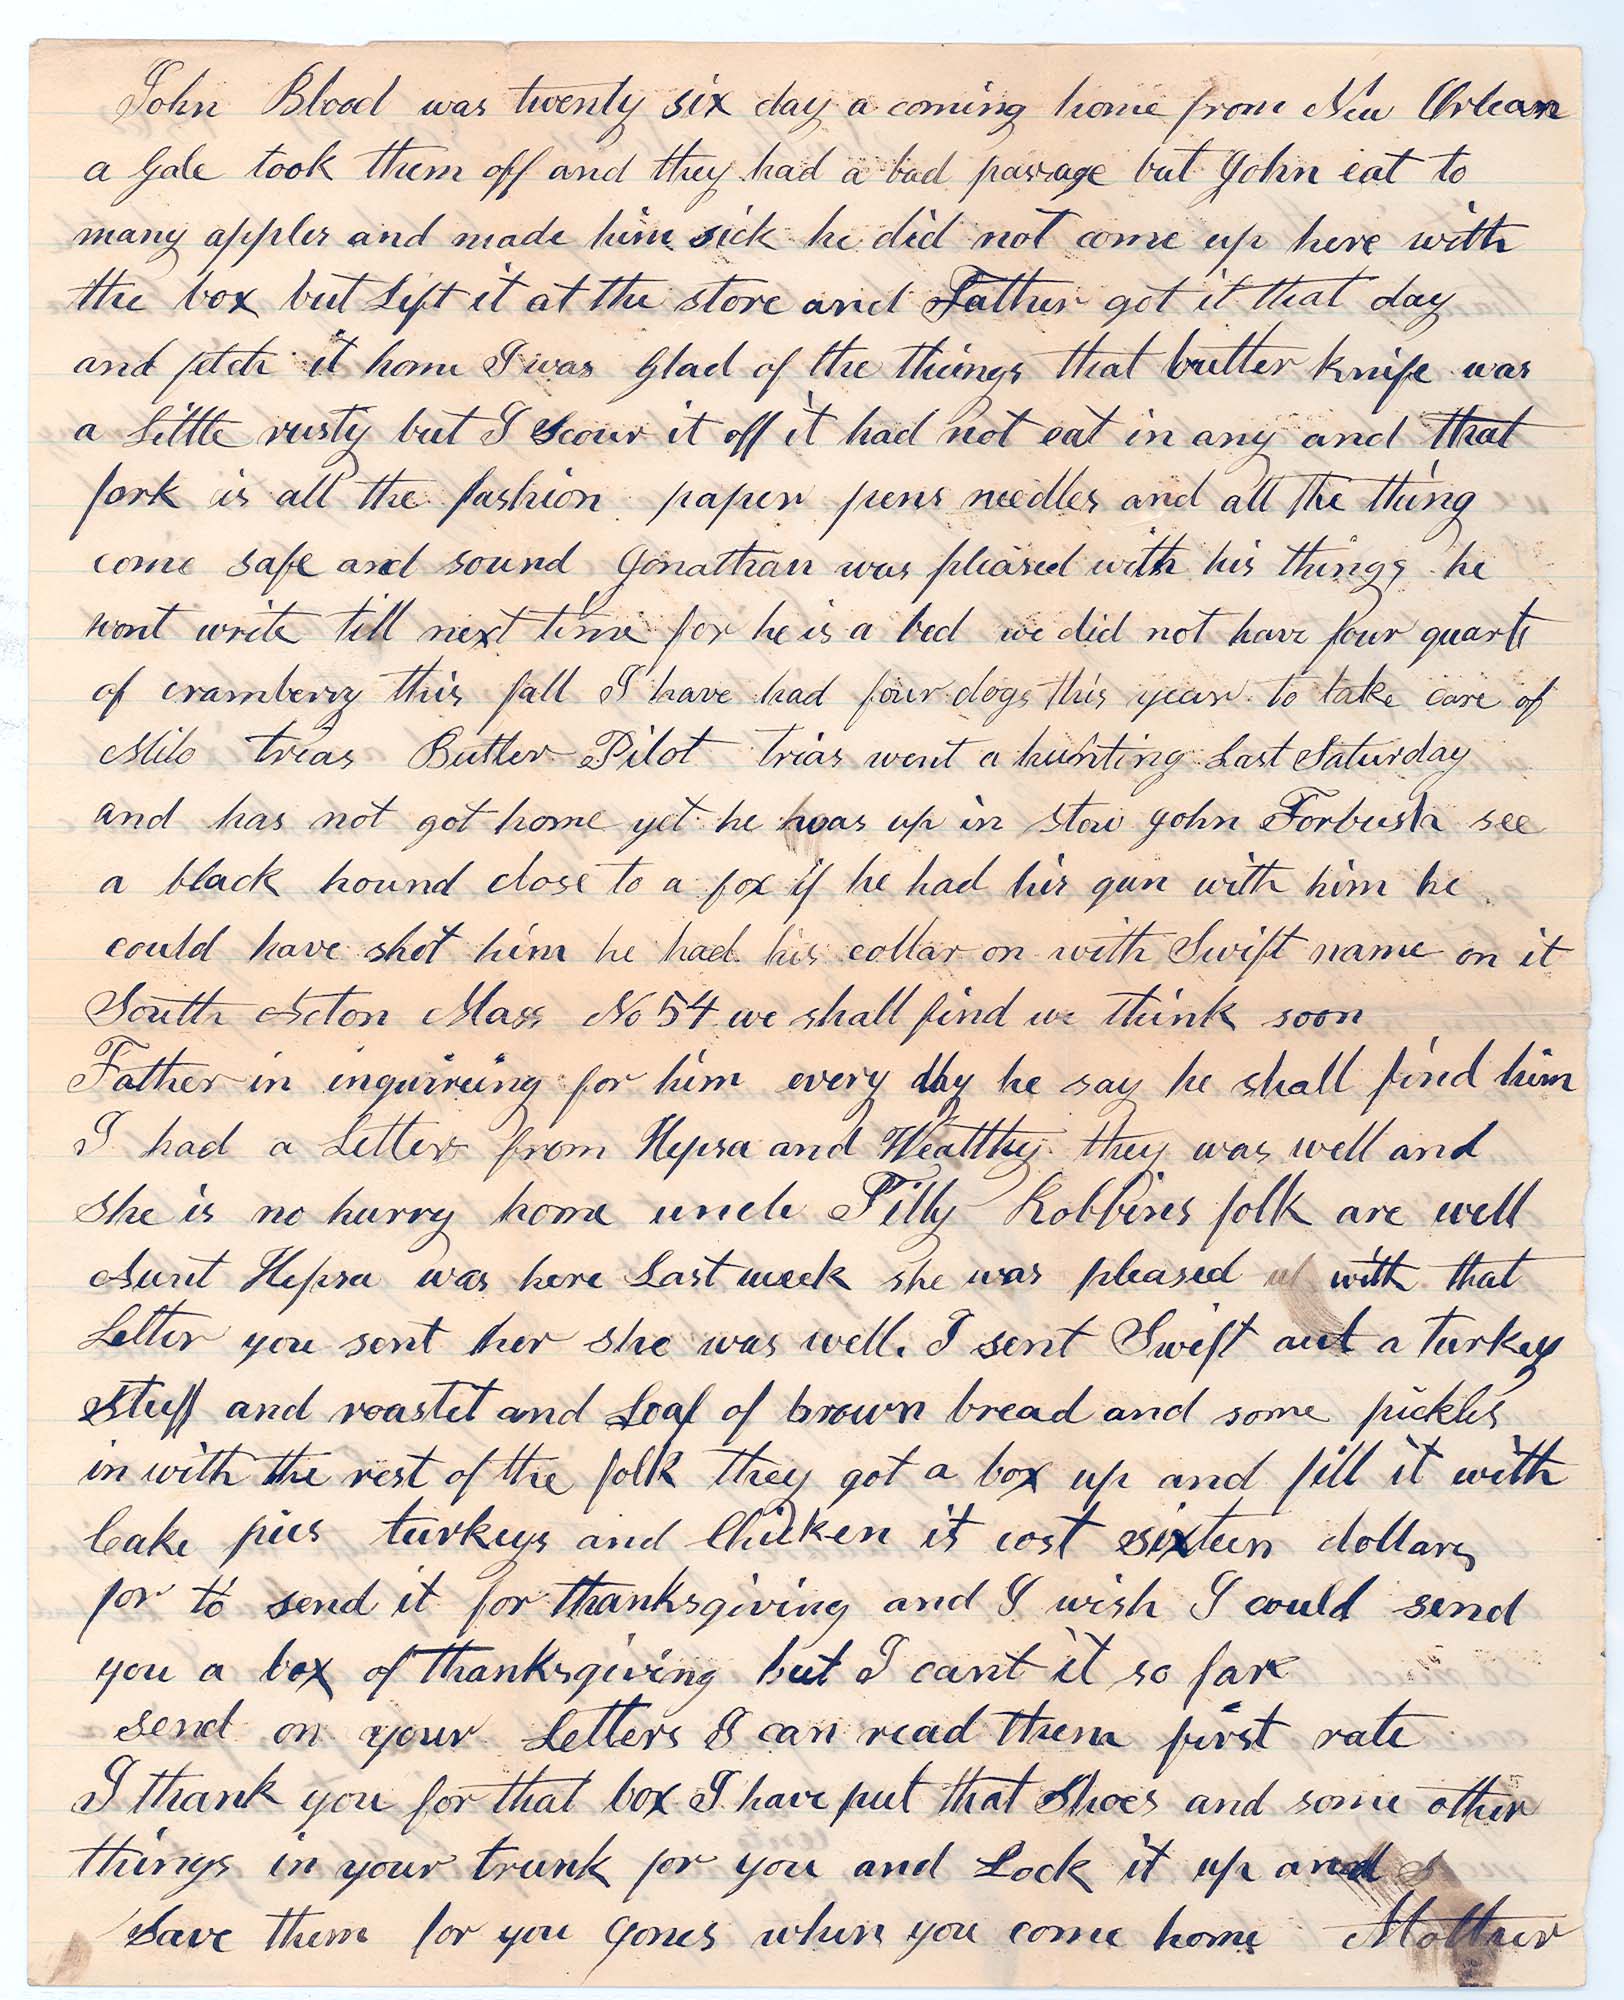 John Blood was twenty six day a coming home from New Orlean
a Gale took them off and they had a bad passage but John eat to
many apples and made him sick he did not come up here with
the box but Left it at the store and Father got it that day
and fetch it home I was Glad of the things that butter knife was
a Little rusty but I Scour it off it had not eat in any and that
fork is all the fashion paper pens needles and all the thing
come safe and sound Jonathan was pleased with his things he
wont write till next time for he is a bed we did not have four quarts
of cramberry this fall I have had four dogs this year to take care of
Milo trias Butler Pilot trias went a hunting Last Saturday
and has not got home yet he was up in Stow John Forbush see
a black hound close to a fox if he had his gun with him he
could have shot him he had his collar on with Swift name on it
South Acton Mass No 54 we shall find we think soon
Father in inquireing for him every day he say he shall find him
I had a Letter from Hepsa and Wealthy they was well and
she is no hurry home uncle Tilly Robbins folk are well
Aunt Hepsa was here Last week she was pleased with that
Letter you sent her she was well. I sent Swift out a turkey
Stuff and roastet and Loaf of brown bread and some pickles
in with the rest of the folk they got a box up and fill it with
Cake pies turkeys and Chicken it cost sixteen dollars
for to send it for thanksgiving and I wish I could send
you a box of thanksgiving but I cant it so far
send on your Letters I can read them first rate
I thank you for that box I have put that Shoes and some other
things in your trunk for you and Lock it up and
Save them for you Jones when you come home Mother